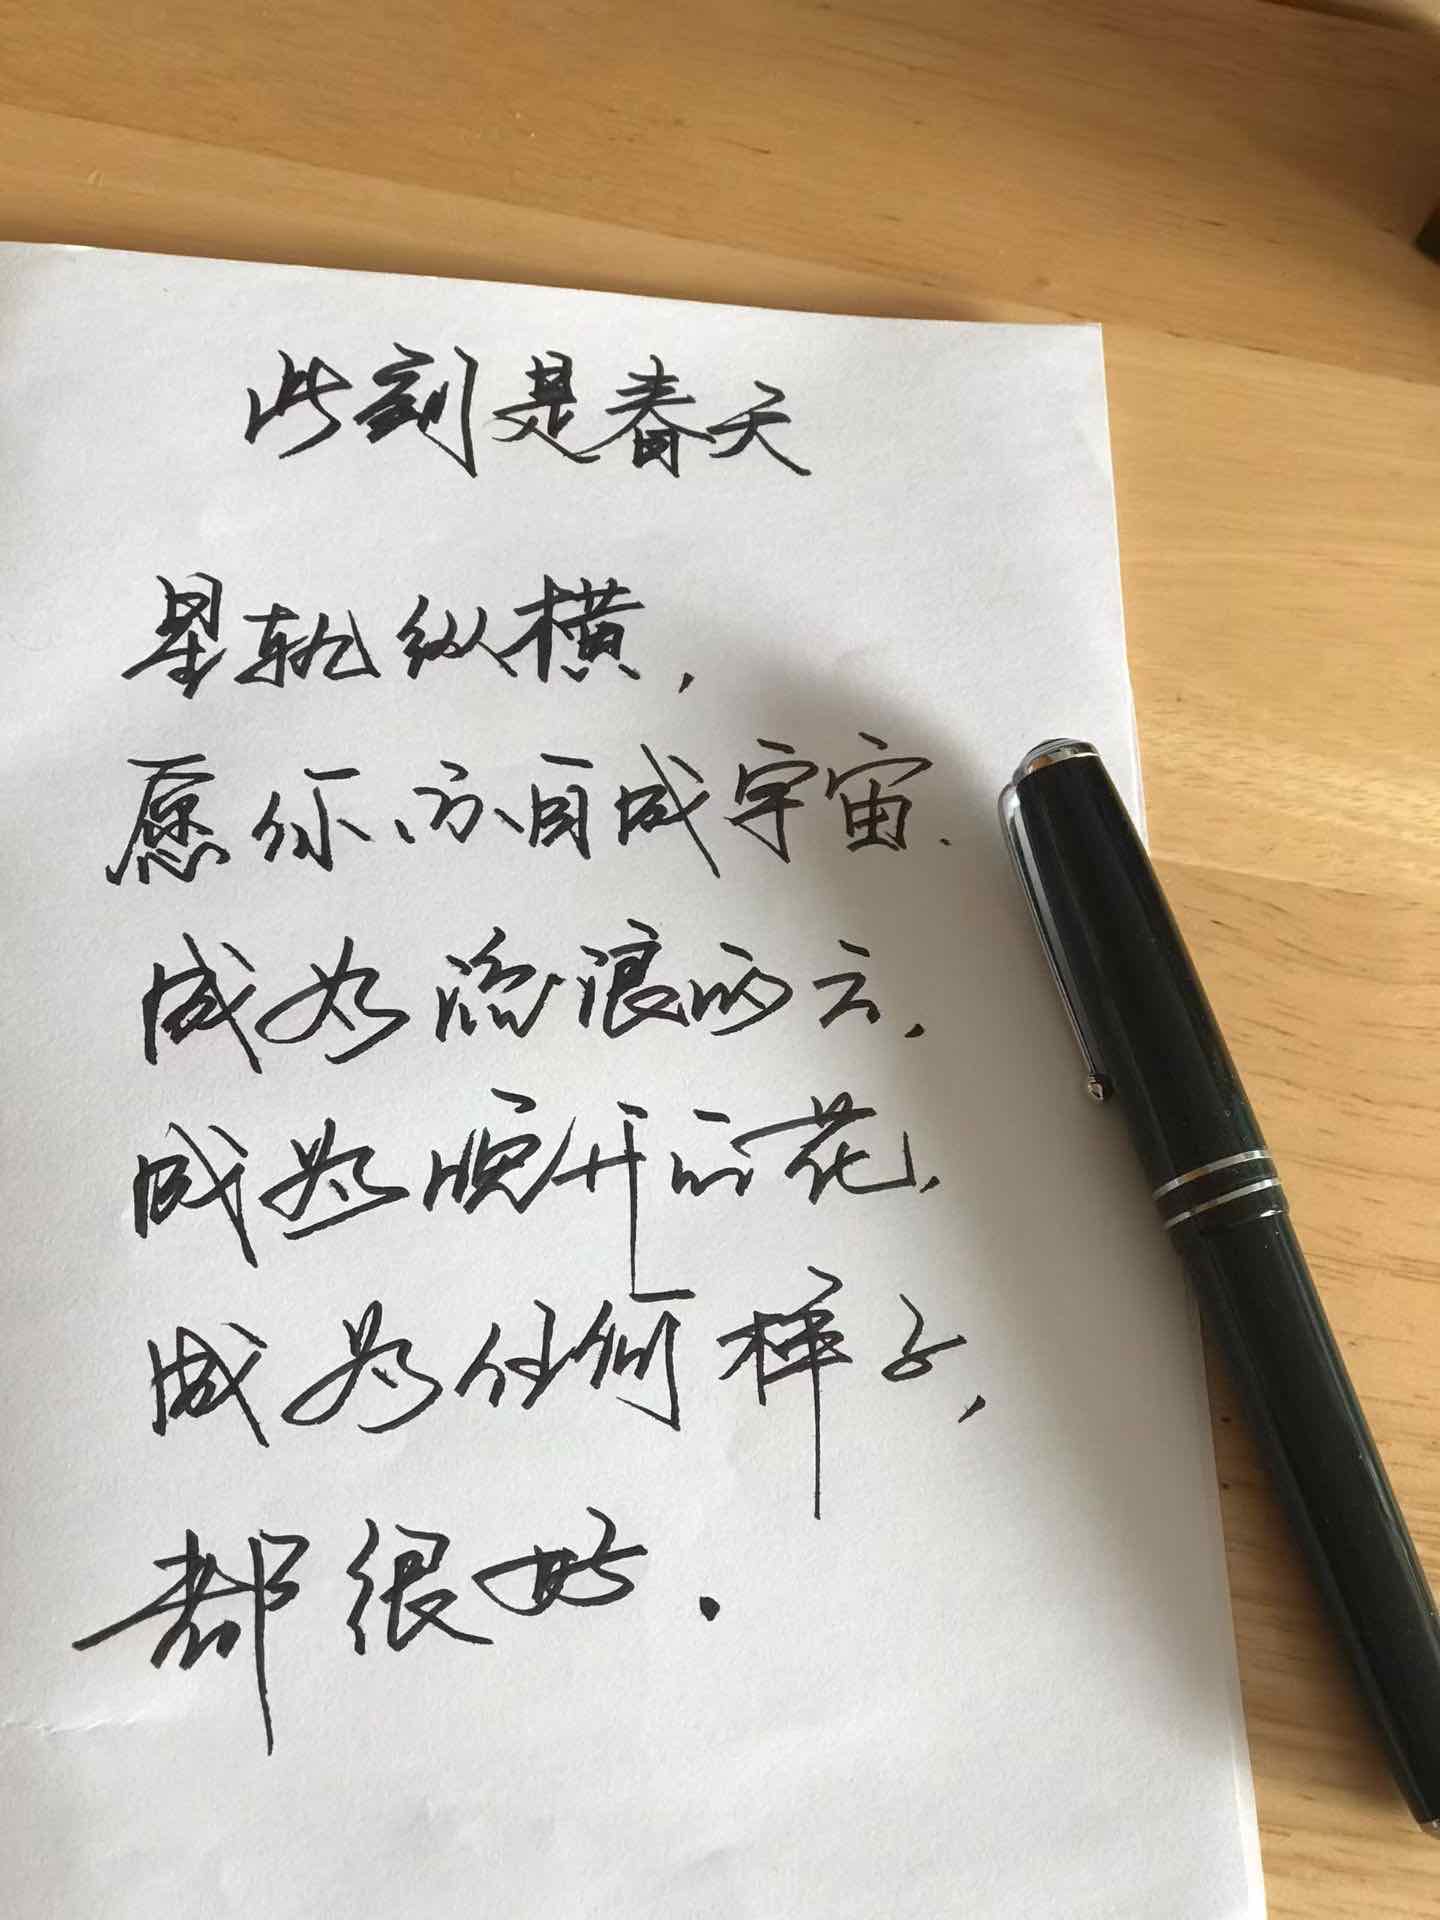 此刻是春天
星轨纵横，
愿你亦自成宇宙.
成为流浪的云，
成为晚开的花，
成为任何样子，
都很好.